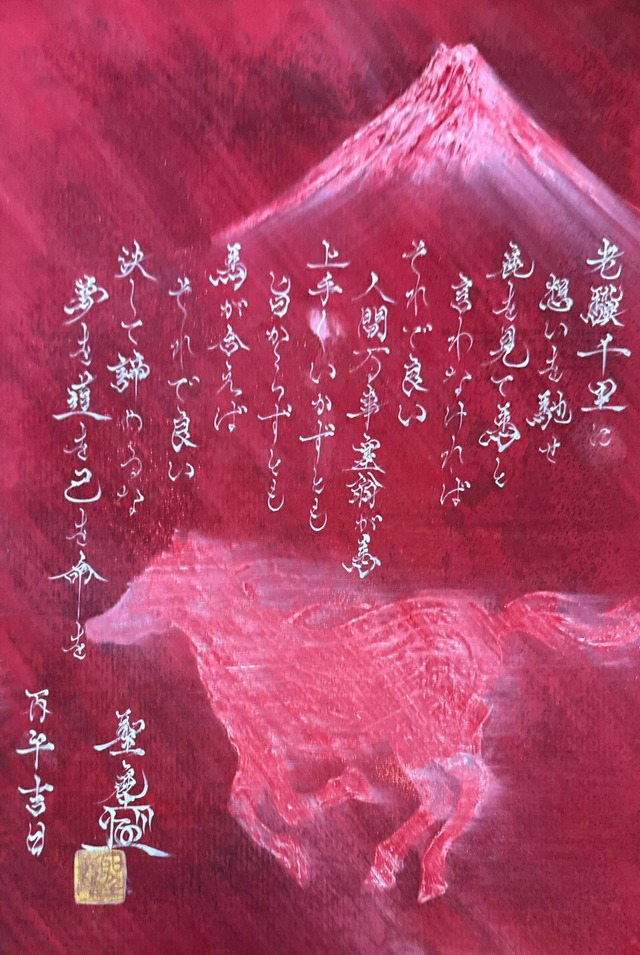 老驥千里に
想いを馳せ
鹿を見て馬と
言わなければ
それで良い
人間万事塞翁が馬
上手くいかずとも
旨からずとも
馬が合えば
それで良い
決して諦めるな
夢を道を己を命を
吉日